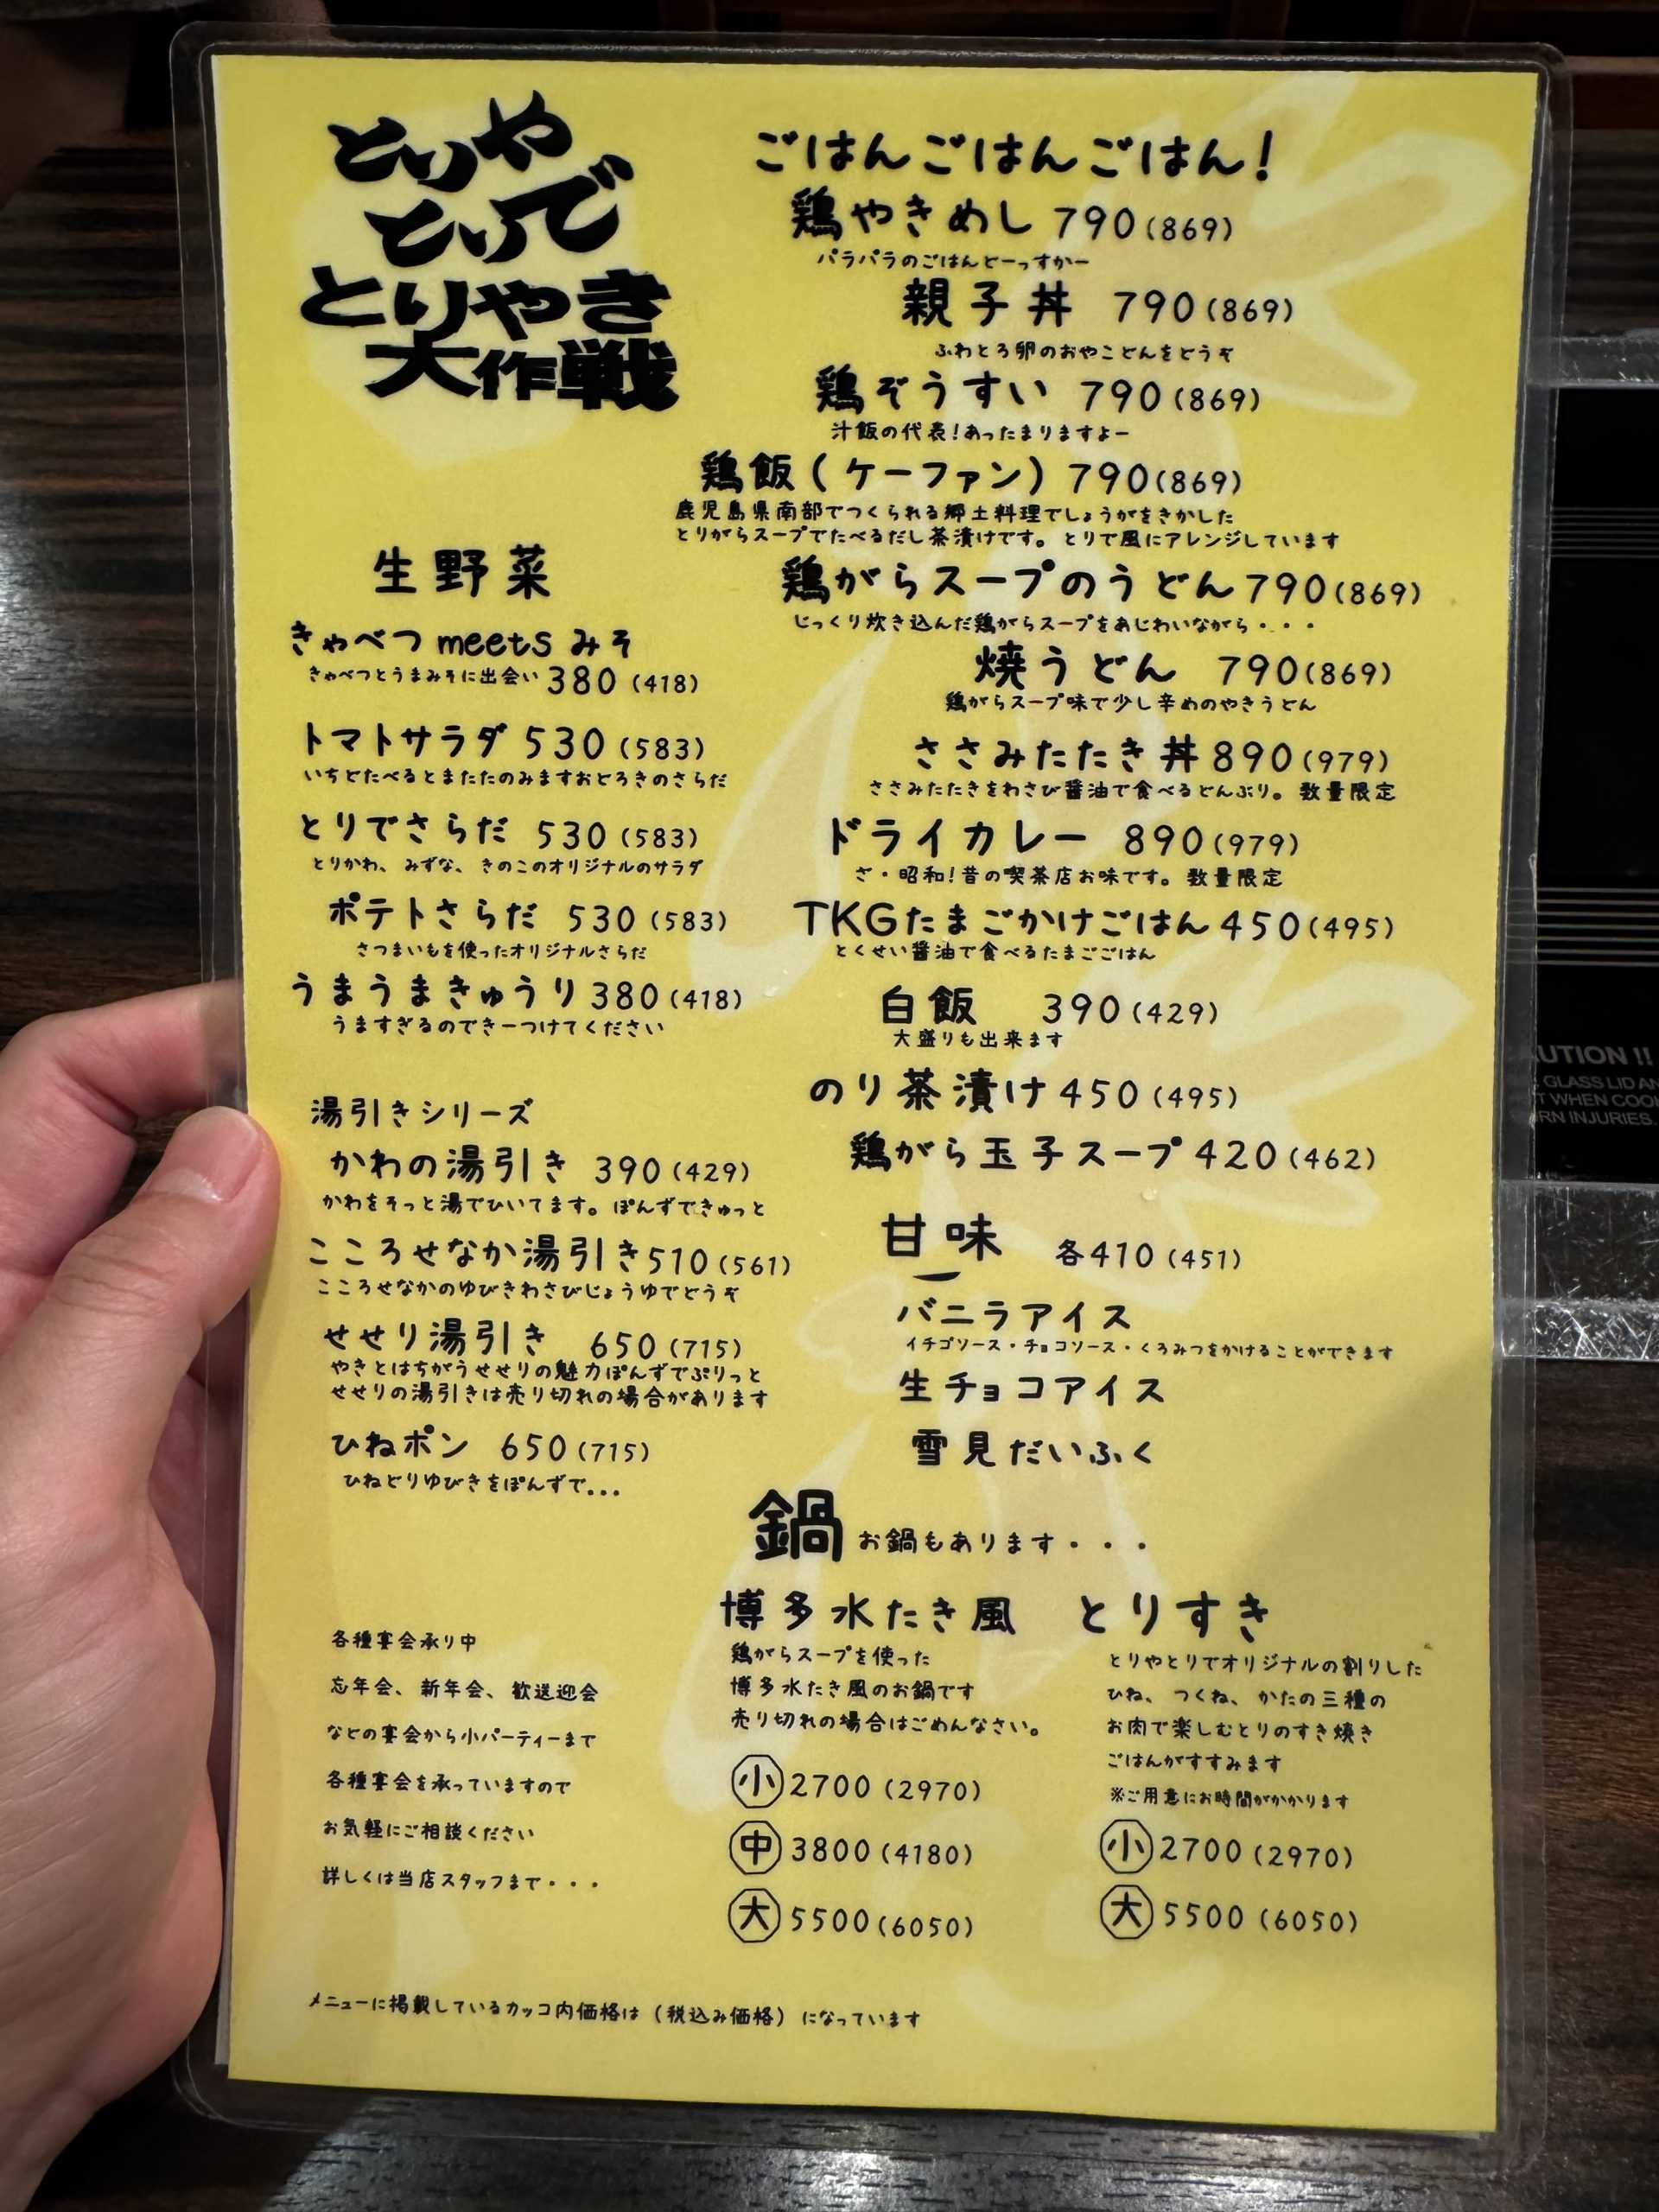 とりや
とりで
とりやき
大作戦
生野菜
きゃべつ meets みそ
きゃべつとうまみそに出会い 380 (418)
トマトサラダ 530 (583)
いちどたべるとまたたのみますおどろきのさらだ
とりでさらだ 530 (583)
とりかわ、みずな、きのこのオリジナルのサラダ
ポテトさらだ 530 (583)
さつまいもを使ったオリジナルさらだ
うまうまきゅうり 380 (418)
うますぎるのできーつけてください
湯引きシリーズ
かわの湯引き 390 (429)
かわをそっと湯でひいてます。ぽんずできゅっと
こころせなか湯引き 510 (561)
こころせなかのゆびきわさびじょうゆでどうぞ
せせり湯引き 650 (715)
やきとはちがうせせりの魅力ぽんずでぷりっと
せせりの湯引きは売り切れの場合があります
ひねポン 650 (715)
ひねどりゆびきをぽんずで...
各種宴会承り中
忘年会、新年会、歓送迎会
などの宴会から小パーティーまで
各種宴会を承っていますので
お気軽にご相談ください
詳しくは当店スタッフまで・・・
ごはんごはんごはん!
鶏やきめし 790 (869)
パラパラのごはんどーっすかー
親子丼 790 (869)
ふわとろ卵のおやこどんをどうぞ
鶏ぞうすい 790 (869)
汁飯の代表!あったまりますよー
鶏飯(ケーファン) 790 (869)
鹿児島県南部でつくられる郷土料理でしょうがをきかした
とりがらスープでたべるだし茶漬けです。とりで風にアレンジしています
鶏がらスープのうどん 790 (869)
じっくり炊き込んだ鶏がらスープをあじわいながら・・・
焼うどん 790 (869)
鶏がらスープ味で少し辛めのやきうどん
ささみたたき丼 890 (979)
ささみたたきをわさび醤油で食べるどんぶり。数量限定
ドライカレー 890 (979)
ざ・昭和!昔の喫茶店お味です。数量限定
TKGたまごかけごはん 450 (495)
とくせい醤油で食べるたまごごはん
白飯 390 (429)
大盛りも出来ます
のり茶漬け 450 (495)
鶏がら玉子スープ 420 (462)
甘味 各410 (451)
バニラアイス
イチゴソース・チョコソース・くろみつをかけることができます
生チョコアイス
雪見だいふく
鍋 お鍋もあります・・・
博多水たき風
鶏がらスープを使った
博多水たき風のお鍋です
売り切れの場合はごめんなさい。
小 2700 (2970)
中 3800 (4180)
大 5500 (6050)
とりすき
とりやとりでオリジナルの割りした
ひね、つくね、かたの三種の
お肉で楽しむとりのすき焼き
ごはんがすすみます
※ご用意にお時間がかかります
小 2700 (2970)
大 5500 (6050)
メニューに掲載しているカッコ内価格は(税込み価格)になっています
UTION !!
GLASS LID AN
T WHEN COO
RN INJURIES.